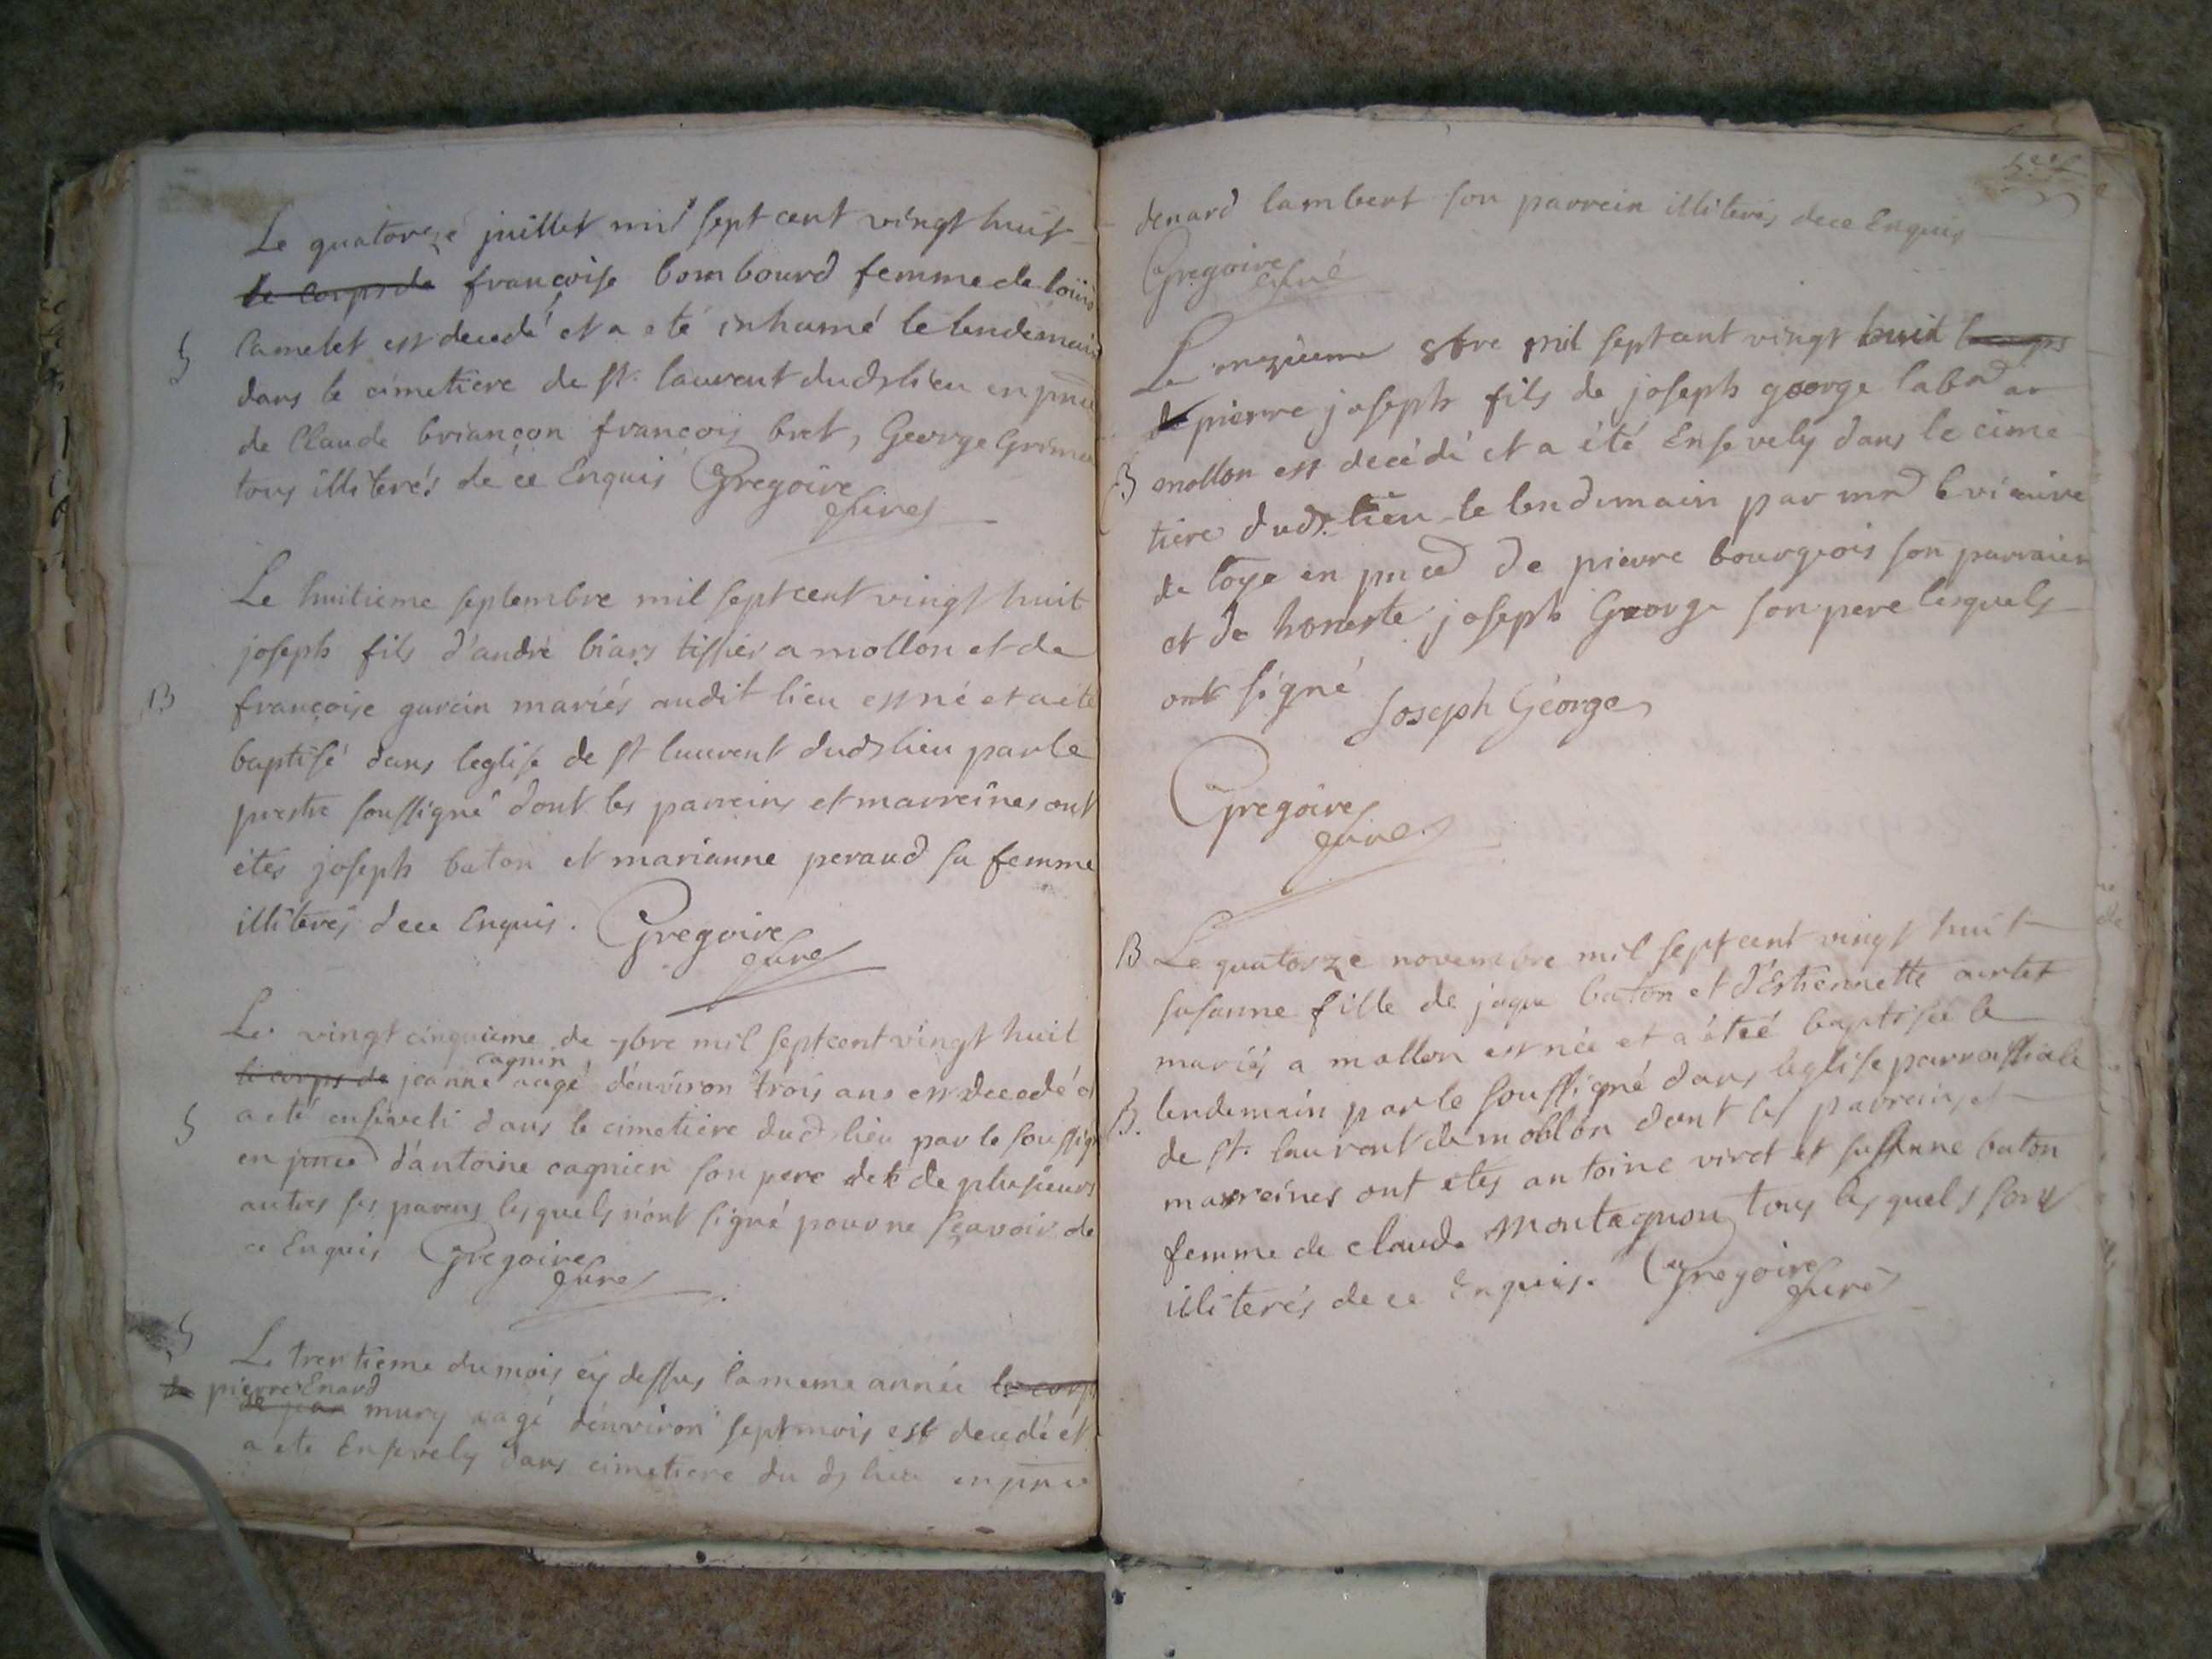 Le quatorze juillet mil sept cent vingt huit
le corps de francoise bombourd femme de loüis
Camelet est decedé et a eté inhumé le lendemain
S
dans le cimetiere de st. laurent dud. lieu en pnce
de Claude briançon francois bret, George Grimet
tous illiterés de ce Enquis Gregoire
curé
Le huitieme septembre mil sept cent vingt huit
joseph fils d'andré biars tissier a mollon et de
B
francoise garcin mariés audit lieu est né et a eté
baptisé dans leglise de st laurent dud. lieu par le
prestre soussigné dont les parreins et marreines ont
étés joseph baton et marianne peraud sa femme
illiterés de ce Enquis. Gregoire
curé
Le vingt cinquieme de 7bre mil sept cent vingt huit
cagnin
le corps de jeanne aagé d'environ trois ans est decedé et
S
a eté enséveli dans le cimetiere dud. lieu par le soussigné
en pnce d'antoine cagnien son pere et de plusieurs
autres ses parens lesquels n'ont signé pour ne sçavoir de
ce Enquis Gregoire
curé
S
Le trentieme du mois cy dessus la meme année le corps
de pierre Enard
de jean mury aagé d'environ sept mois est decedé et
a eté Ensevely dans cimetiere du d. lieu en pnce
denard lambert son parrein illiterés de ce Enquis
Gregoire
curé
Le onzieme 8bre mil sept cent vingt huit le corps
de pierre joseph fils de joseph george labr a
B
mollon est decédé et a été Ensevely dans le cime
tiere dud. lieu le lendemain par mr le vicaire
de loye en pnce de pierre bourgeois son parrain
et de honeste joseph George son pere lesquels
ont signé
Joseph George
Gregoire
curé
B
Le quatorze novembre mil sept cent vingt huit
susanne fille de jaque baton et d'Estiennette
mariés a mollon est née et a étée baptisée le
B.
lendemain par le soussigné dans leglise parroissiale
de st. laurent de mollon dont les parreins et
marreines ont etés antoine viret et susanne baton
femme de claude Montagnon tous lesquels sont
illiterés de ce Enquis. Gregoire
curé